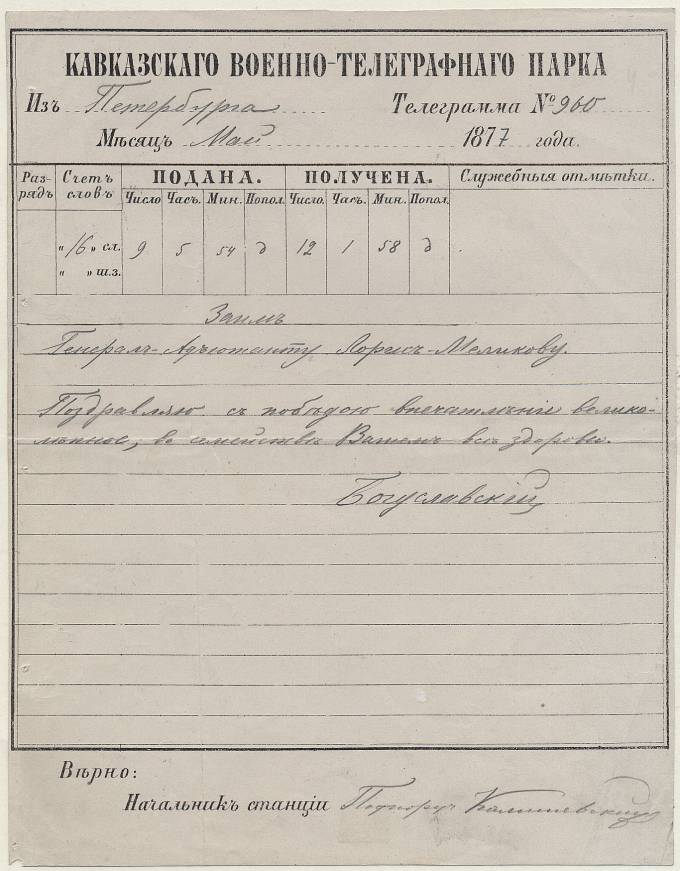 КАВКАЗСКАГО ВОЕННО-ТЕЛЕГРАФНАГО ПАРКА
Изъ Петербурга Телеграмма № 960
Мѣсяцъ Май 1877 года.
Раз-рядъ Счетъ словъ ПОДАНА. ПОЛУЧЕНА. Служебныя отмѣтки.
Число Часъ. Мин. Попол. Число. Часъ. Мин. Попол.
„ 16 „ сл. 9 5 54 д 12 1 58 д
„ „ ш.з.
Заимъ
Генералъ-Адъютанту Лорисъ-Меликову.
Поздравляю съ побѣдою впечатлѣніе велико-
лѣпное, въ семействѣ Вашемъ всѣ здоровы.
Богуславскій
Вѣрно:
Начальникъ станціи Подпоруч